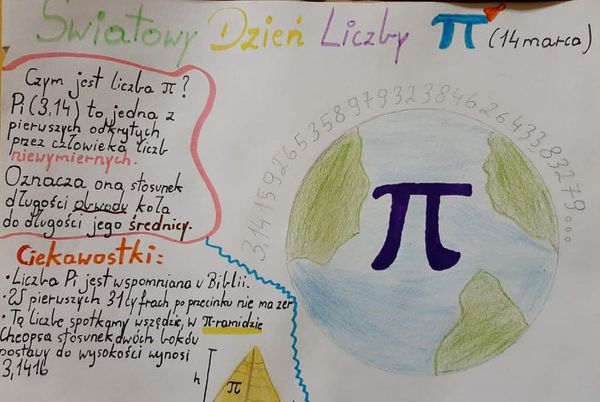 Światowy Dzień Liczby π (14 marca)
Czym jest liczba π?
Pi (3,14) to jedna z
pierwszych odkrytych
przez człowieka liczb
niewymiernych.
Oznacza ona stosunek
długości obwodu koła
do długości jego średnicy.
Ciekawostki:
• Liczba Pi jest wspomniana w Biblii.
• W pierwszych 31 cyfrach po przecinku nie ma zer
• Tą liczbę spotkamy wszędzie, w π-ramidzie
Cheopsa stosunek dwóch boków
podstawy do wysokości wynosi
3,1416
h
π
3,141592653589793238462643383279...
π